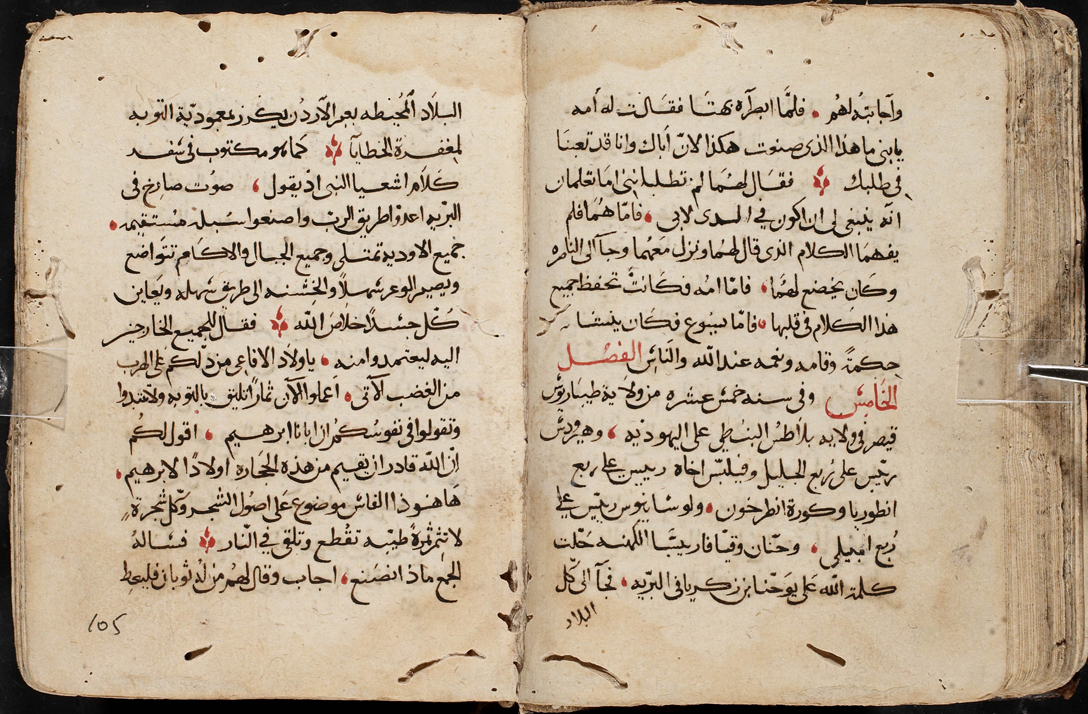 واجابته لهم • فلما ابصراه بهتا فقالت له أمه
يابني ما هذا الذي صنعت هكذا لانّ أباك وانا قد تعبنا
في طلبك فقال لهما لم تطلباني اما تعلمان
انه ينبغي لي ان اكون في الـذي لابي • فامّا هما فلم
يفهما الكلام الذي قال لهما ونزل معهما وجآ الى الناصره
وكان يخضع لهما • فامّا امه فكانت تحفظ جميع
هذا الكلام في قلبها • فامّا يسوع فكان ينشا
حكمةً وقامه ونعمه عند الله والناس الفصل
الخامس وفي سنه خمس عشره من ولاية طيباريوس
قيصر في ولايه بلاطس البنطي على اليهوديه • وهيرودس
رئيس على ربع الجليل وفيلبس اخاه رييس على ربع
انطوريا وكورة انطرخون • ولوسانيوس رييس على
ربع ابيلي • وحنان وقيافا رييسا الكهنه حلت
كلمة الله على يوحنا بن زكريا في البريه • فجآ الى كل
البلاد
البلاد المحيطه بعبر الآردن يكرز بمعموديّة التوبه
لمغفرة الخطايا كما هو مكتوب في سفر
كلام اشعيا النبي اذ يقول • صوت صارخ في
البريه اعدوا طريق الرب واصنعوا سبله مستقيمه •
جميع الاوديه تمتلي وجميع الجبال والاكام تتواضع
ويصير الوعر سهلاً والخشنه الى طريق سهله ويعاين
كل جسد خلاص الله فقال للجميع الخارجين
اليه ليعتمدوا منه • ياولاد الافاعي من دلكم على الهرب
من الغضب الآتي • اعملوا الآن ثماراً تليق بالتوبه ولا تبتدوا
وتقولوا في نفوسكم ان ابانا ابرهيم • اقول لكم
إنّ الله قادر ان يقيم من هذه الحجاره اولادًا لابرهيم •
هاهوذا الفاس موضوع على اصول الشجر وكل شجرة
لا تثمر ثمرةً طيبه تقطع وتلقى في النار فساله
الجمع ماذا نصنع • اجاب وقال لهم من له ثوبان فليعط
105